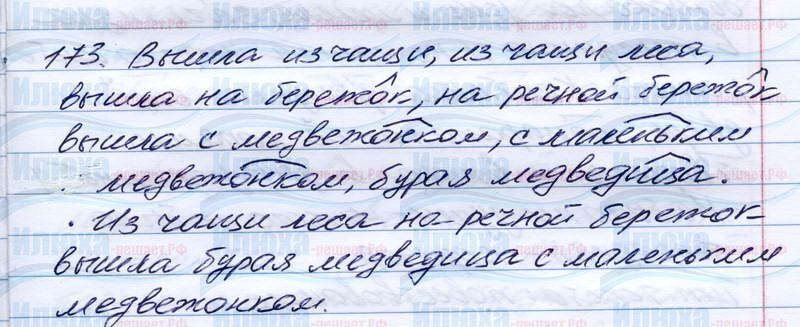 173. Вышла из чащи, из чащи леса,
вышла на бережок, на речной бережок
вышла с медвежонком, с маленьким
медвежонком, бурая медведица.
· Из чащи леса на речной бережок
вышла бурая медведица с маленьким
медвежонком.